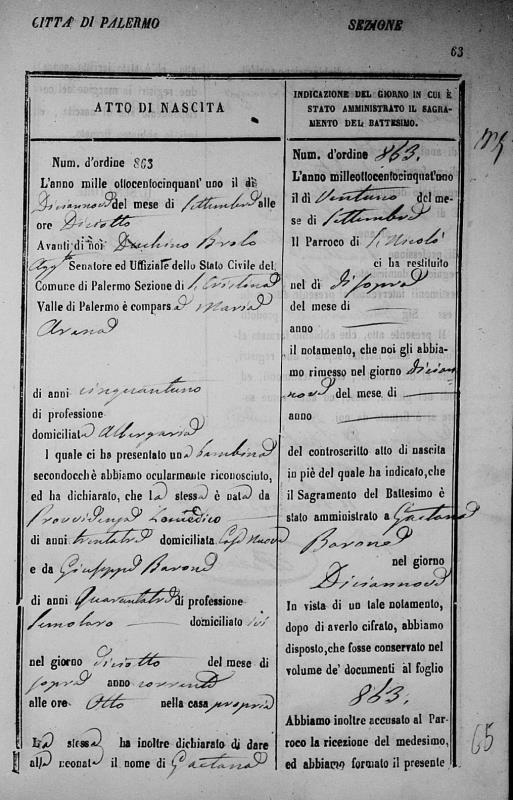 CITTÀ DI PALERMO
SEZIONE
63
ATTO DI NASCITA
Num. d'ordine 863
L'anno mille ottocentocinquant' uno il dì
Diciannove del mese di Settembre alle
ore Diciotto
Avanti di noi Duchino Brolo
Senatore ed Uffiziale dello Stato Civile del
Comune di Palermo Sezione di S. Cristina
Valle di Palermo è comparsa Maria
Arana
di anni cinquantuno
di professione
domiciliata Albergaria
I quale ci ha presentato una bambina
secondocchè abbiamo ocularmente riconosciuto,
ed ha dichiarato, che la stessa è nata da
Provvidenza Lomedico
di anni trentatre domiciliata Casa Nuova
e da Giuseppe Barone
di anni Quarantatre di professione
Semolaro domiciliato ivi
nel giorno diciotto del mese di
sopra anno corrente
alle ore Otto nella casa propria
La stessa ha inoltre dichiarato di dare
alla neonata il nome di Gaetana
INDICAZIONE DEL GIORNO IN CUI È
STATO AMMINISTRATO IL SAGRA-
MENTO DEL BATTESIMO.
Num. d'ordine 863.
L'anno milleottocentocinquant'uno
il dì Ventuno del me-
se di Settembre
Il Parroco di S. Nicolò
ci ha restituito
nel dì di sopra
del mese di
anno
il notamento, che noi gli abbia-
mo rimesso nel giorno dician
nove del mese di
anno
del controscritto atto di nascita
in piè del quale ha indicato, che
il Sagramento del Battesimo è
stato amministrato a Gaetana
Barone
nel giorno
Diciannove
In vista di un tale notamento,
dopo di averlo cifrato, abbiamo
disposto, che fosse conservato nel
volume de' documenti al foglio
863.
Abbiamo inoltre accusato al Par-
roco la ricezione del medesimo,
ed abbiamo formato il presente
65